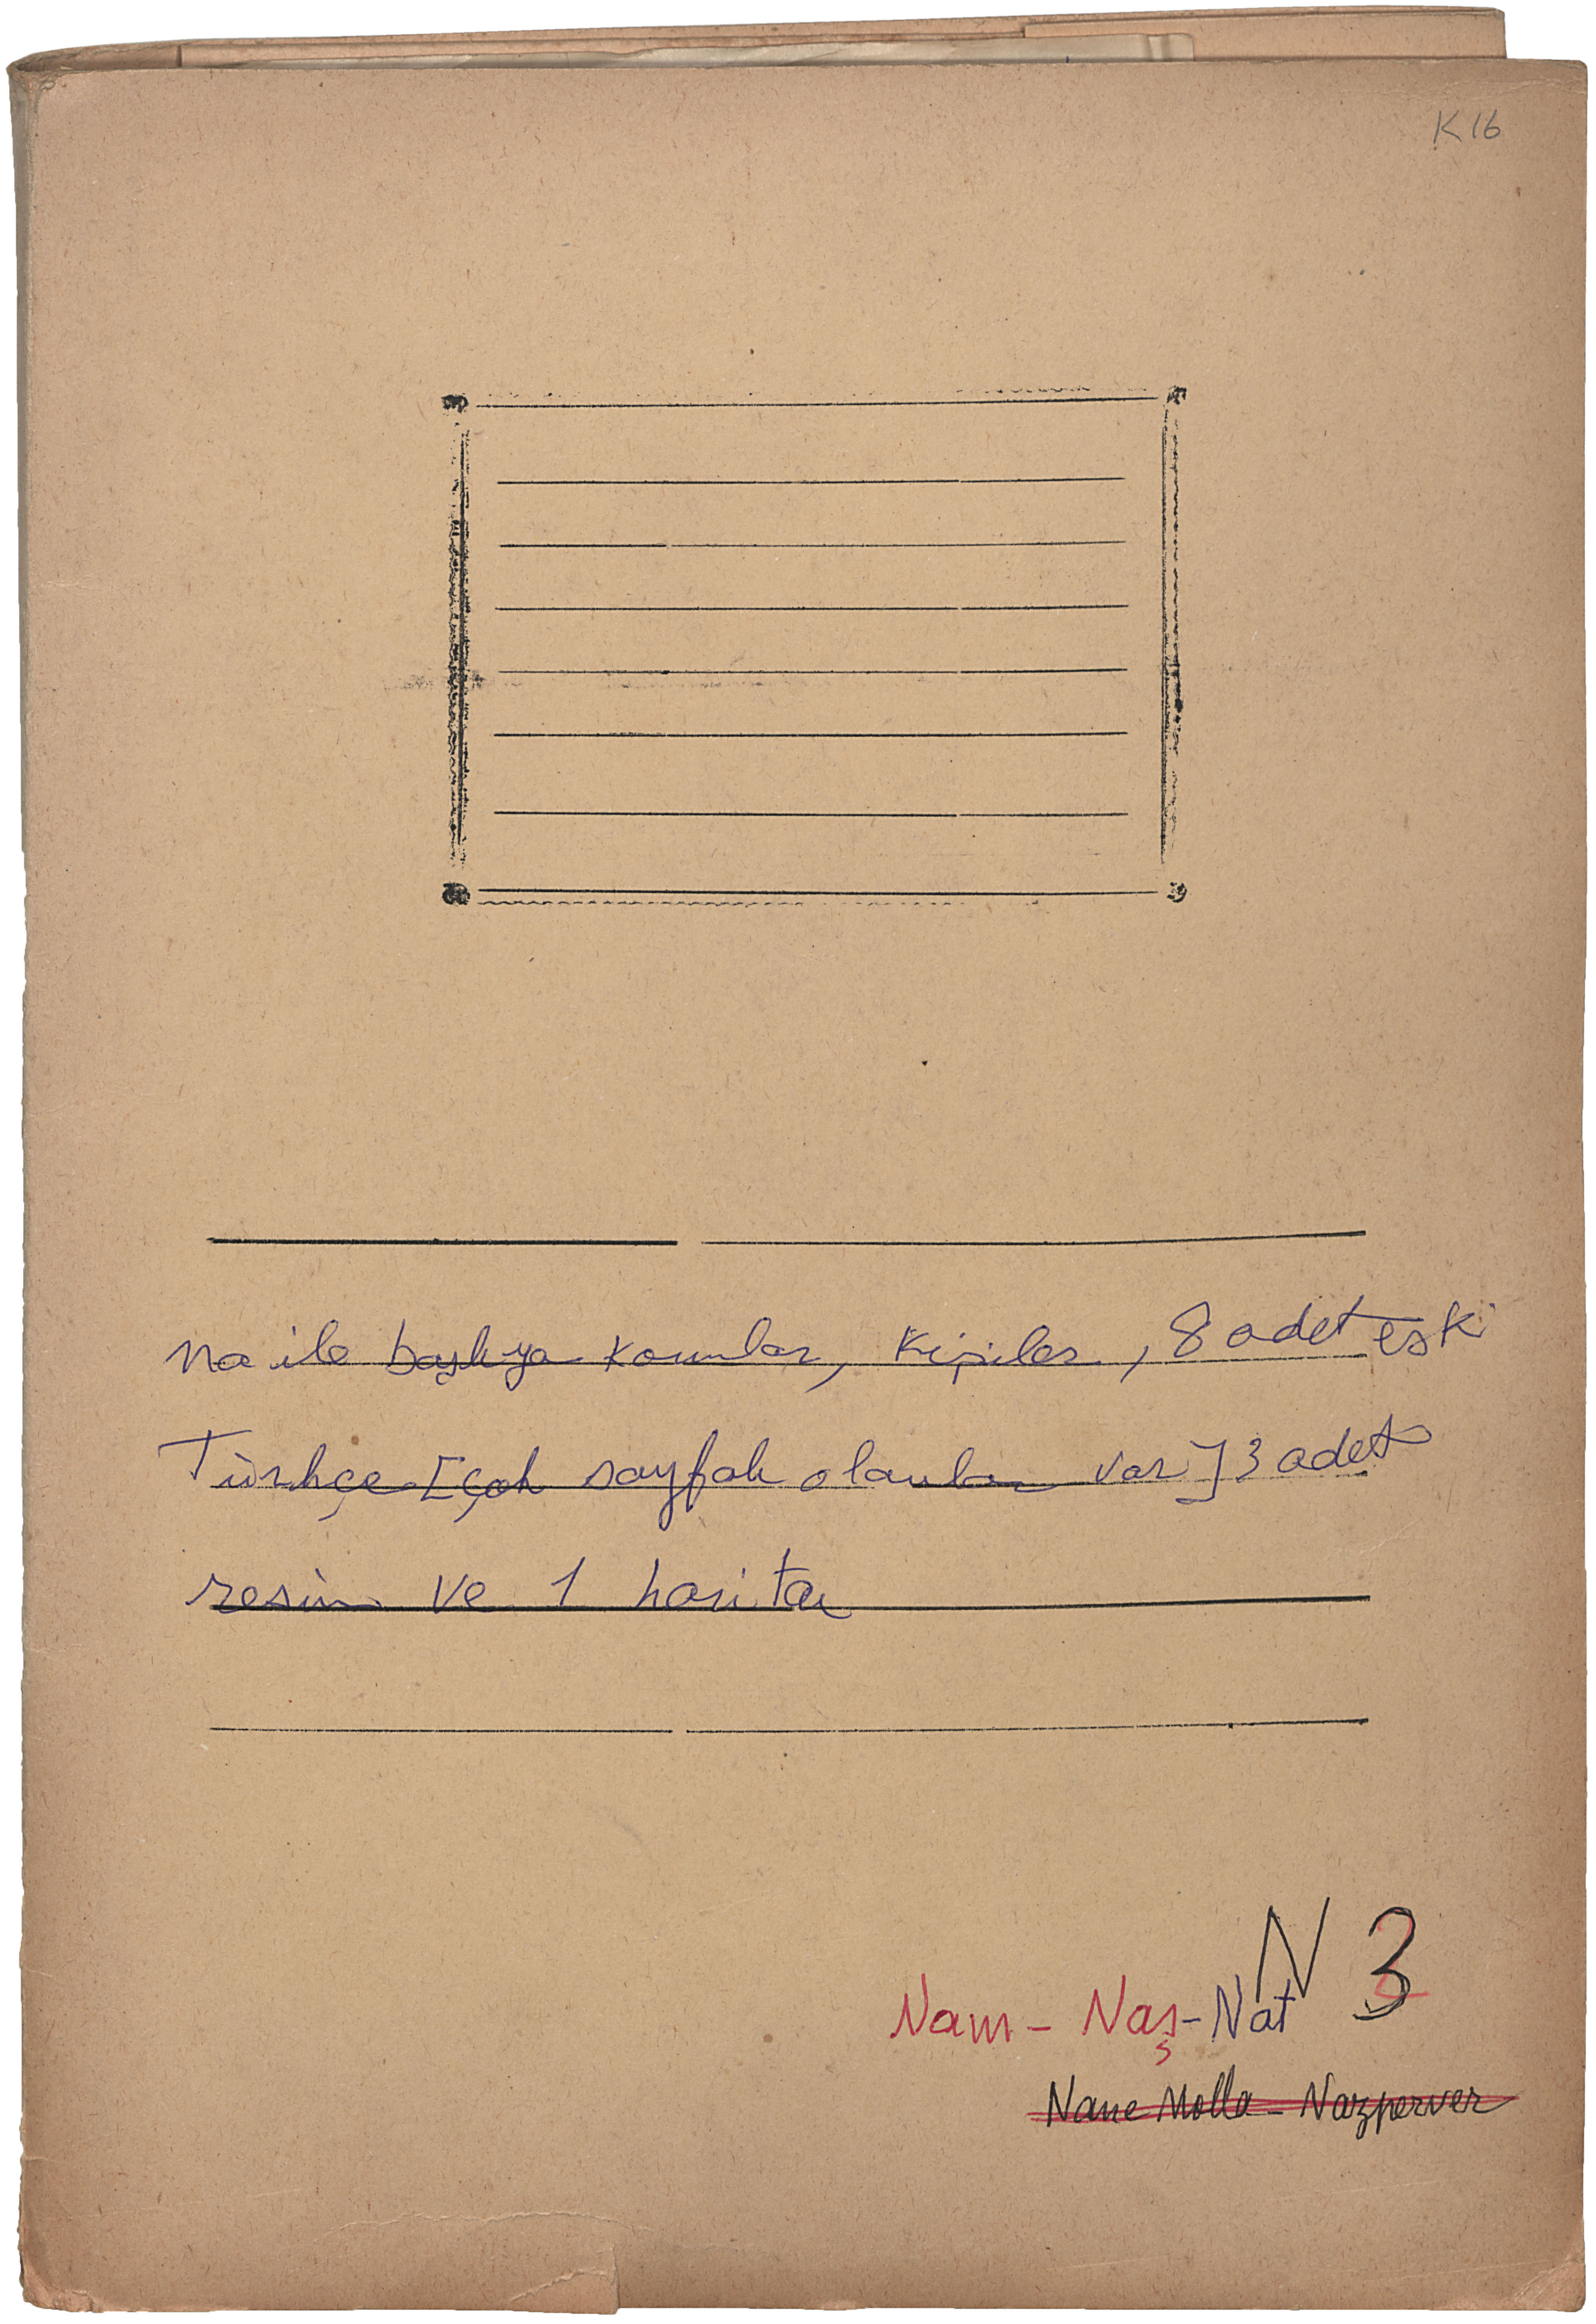 K 16
na ile başlıya konular, kişiler, 8 adet eski
Türkçe [çok sayfalı olanlar var] 3 adet
resim ve 1 harita
N 3
Nam - Naş - Nat
Nane Molla - Nazperver